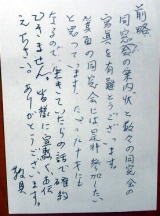 前略
同窓会の案内状と数々の同窓会の
写真を有難とうございます。
箕面の同窓会には是非参加したい
と思っています。
なるので、生きていたらの話で確約
できません。皆様に宜敷くお伝
え下さい。ありがとうございます。
敬具